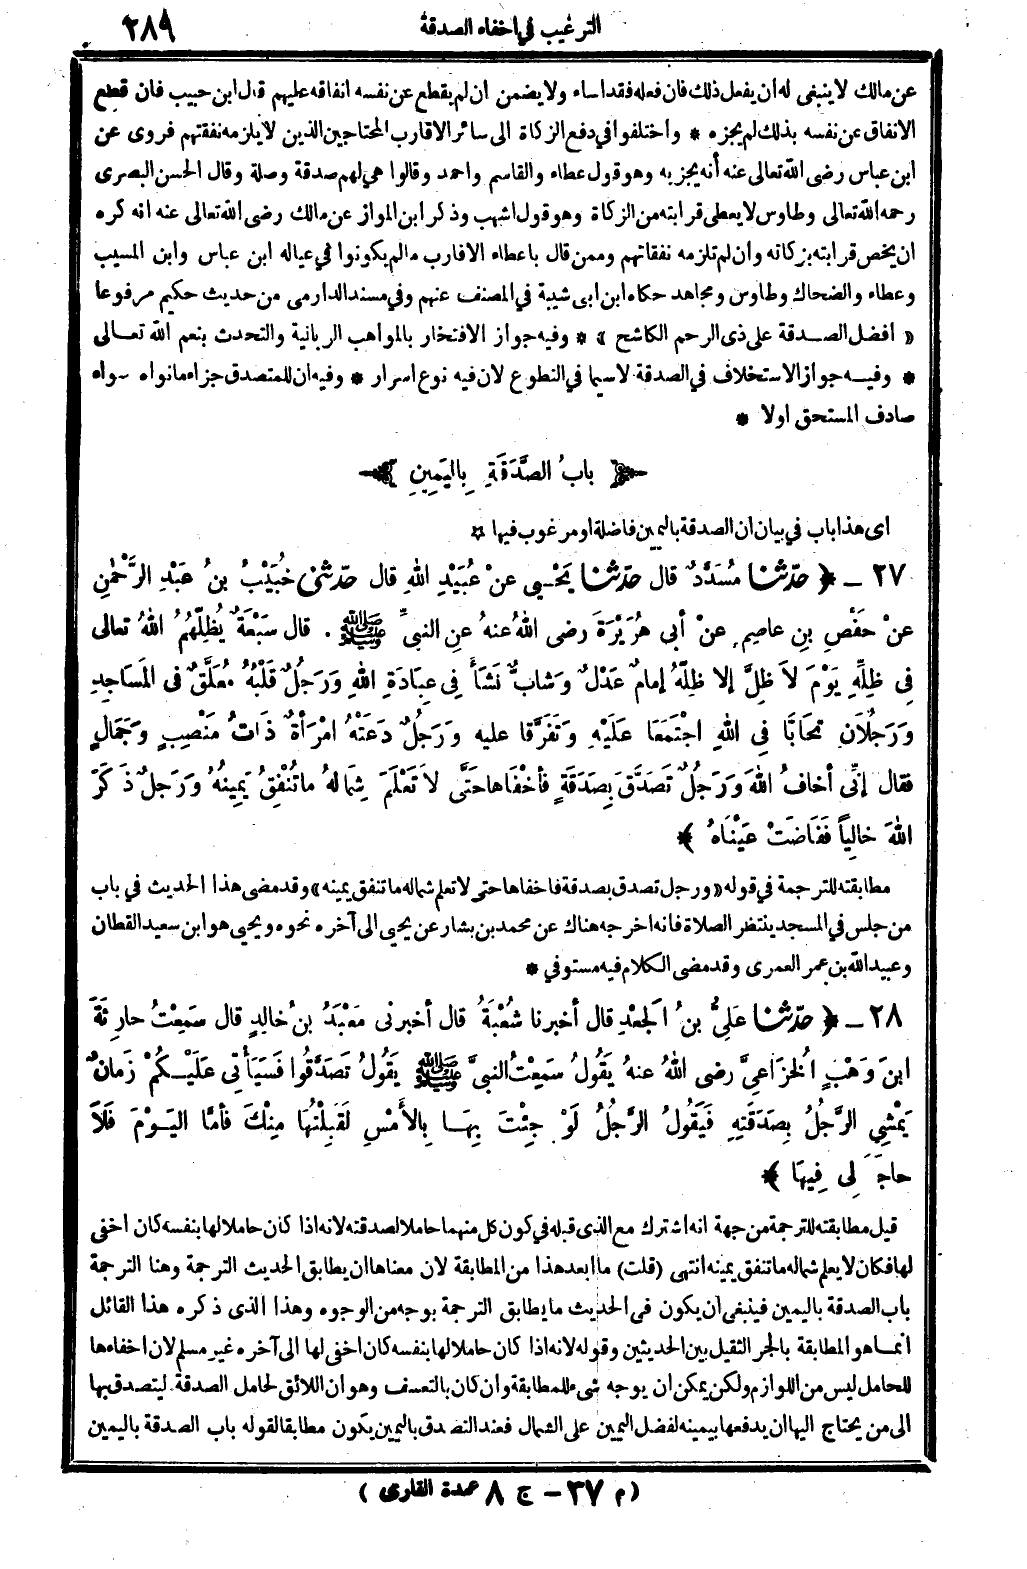 الترغيب في اخفاء الصدقة
٢٨٩
عن مالك لا ينبغى له أن يفعل ذلك فان فعله فقد اساء ولا يضمن ان لم يقطع عن نفسه انفاقه عليهم قال ابن حبيب فان قطع
الانفاق عن نفسه بذلك لم يجزه * واختلفوا في دفع الزكاة الى سائر الاقارب المحتاجين الذين لا يلزمه نفقتهم فروى عن
ابن عباس رضى الله تعالى عنه أنه يجزيه وهو قول عطاء والقاسم واحمد وقالوا هي لهم صدقة وصلة وقال الحسن البصرى
رحمه الله تعالى وطاوس لا يعطى قرابته من الزكاة وهو قول اشهب وذكر ابن المواز عن مالك رضى الله تعالى عنه انه كره
ان يخص قرابته بزكاته وان لم تلزمه نفقاتهم وممن قال باعطاء الاقارب مالم يكونوا في عياله ابن عباس وابن المسيب
وعطاء والضحاك وطاوس ومجاهد حكاه ابن ابى شيبة في المصنف عنهم وفي مسند الدارمى من حديث حكيم مرفوعا
« أفضل الصدقة على ذى الرحم الكاشح » * وفيه جواز الافتخار بالمواهب الربانية والتحدث بنعم الله تعالى
* وفيه جواز الاستخلاف في الصدقة لا سيما في التطوع لان فيه نوع اسرار * وفيه ان للمتصدق جزاء مانواه سواء
صادف المستحق اولا *
بابُ الصَّدَقَةِ بِاليَمِينِ
اى هذا باب في بيان ان الصدقة باليمين فاضلة او مرغوب فيها *
٢٧ - ﴿ حدّثنا مُسَدَّدٌ قال حدّثنا يَحْيى عنْ عُبَيْدِ اللهِ قال حدّثنى خُبَيْبُ بنُ عَبْدِ الرَّحْمٰنِ
عنْ حَفْصِ بنِ عاصِمٍ عنْ أبى هُرَيْرَةَ رضى اللهُ عنهُ عنِ النبىِّ ﷺ . قال سَبْعَةٌ يُظِلُّهُمُ اللهُ تعالى
فِى ظِلِّهِ يَوْمَ لاَ ظِلَّ إلا ظِلُّهُ إمامٌ عَدْلٌ وَشابٌّ نَشَأَ فِى عِبَادَةِ اللهِ وَرَجُلٌ قَلْبُهُ مُعَلَّقٌ فى المَسَاجِدِ
وَرَجُلاَنِ تحَابَّا فِى اللهِ اجْتَمَعَا عَلَيْهِ وَتَفَرَّقا عليه وَرَجُلٌ دَعَتْهُ امْرَأةٌ ذَاتُ مَنْصِبٍ وَجَمَالٍ
فقال إنِّى أخافُ اللهَ وَرَجُلٌ تَصَدَّقَ بِصَدَقَةٍ فأخْفَاها حَتَّى لاَ تَعْلَمَ شِمالهُ ما تُنْفِقُ يَمِينُهُ وَرَجلٌ ذَكَرَ
اللهَ خالِياً فَفَاضَتْ عَيْنَاهُ ﴾
مطابقته للترجمة في قوله « ورجل تصدق بصدقة فاخفاها حتى لا تعلم شماله ما تنفق يمينه » وقد مضى هذا الحديث في باب
من جلس في المسجد ينتظر الصلاة فانه اخرجه هناك عن محمد بن بشار عن يحيى الى آخره نحوه ويحيى هو ابن سعيد القطان
وعبيد الله بن عمر العمرى وقد مضى الكلام فيه مستوفي *
٢٨ - ﴿ حدّثنا عَلِيُّ بنُ الجَعْدِ قال أخبرنا شُعْبَةُ قال أخبرنى مَعْبَدُ بنُ خالِدٍ قال سَمِعْتُ حارِثَةَ
ابنَ وَهْبٍ الخزَاعِيَّ رضى اللهُ عنهُ يَقُولُ سَمِعْتُ النبىَّ ﷺ يَقُولُ تَصَدَّقُوا فَسَيَأتى عَلَيْكُمْ زَمانٌ
يَمْشِي الرَّجُلُ بِصَدَقَتِهِ فَيَقُولُ الرَّجُلُ لَوْ جِئْتَ بِهَا بِالأَمْسِ لَقَبِلْتُهَا مِنْكَ فأمَّا اليَوْمَ فَلاَ
حاجَةَ لِى فِيهَا ﴾
قيل مطابقته للترجمة من جهة انه اشترك مع الذى قبله في كون كل منهما حاملا لصدقته لانه اذا كان حاملا لها بنفسه كان اخفى
لها فكان لا يعلم شماله ما تنفق يمينه انتهى (قلت) ما ابعد هذا من المطابقة لان معناها ان يطابق الحديث الترجمة وهنا الترجمة
باب الصدقة باليمين فينبغى أن يكون فى الحديث ما يطابق الترجمة بوجه من الوجوه وهذا الذى ذكره هذا القائل
انما هو المطابقة بالجر الثقيل بين الحديثين وقوله لانه اذا كان حاملا لها بنفسه كان اخفى لها الى آخره غير مسلم لان اخفاءها
للحامل ليس من اللوازم ولكن يمكن أن يوجه شىء للمطابقة وان كان بالتعسف وهو ان اللائق لحامل الصدقة ليتصدق بها
الى من يحتاج اليها ان يدفعها بيمينه لفضل اليمين على الشمال فعند التصدق باليمين يكون مطابقا لقوله باب الصدقة باليمين
( م ٣٧ - ج ٨ عمدة القارى )